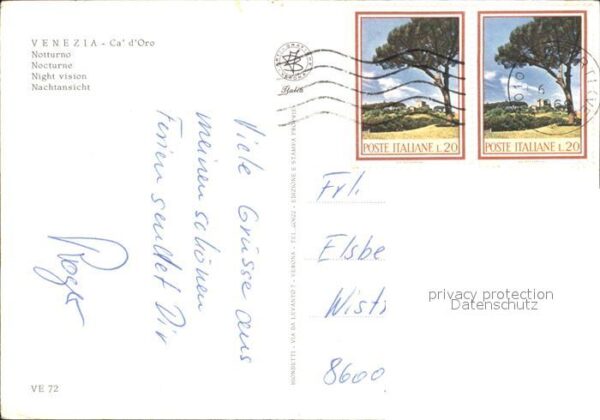 VENEZIA - Ca' d'Oro
Notturno
Nocturne
Night vision
Nachtansicht
Viele Grüsse aus
meinen schönen
Ferien sendet Dir
Roger
VE 72
Italia
POSTE ITALIANE L.20
POSTE ITALIANE L.20
Frl.
Elsbe
Wist
8600
privacy protection
Datenschutz